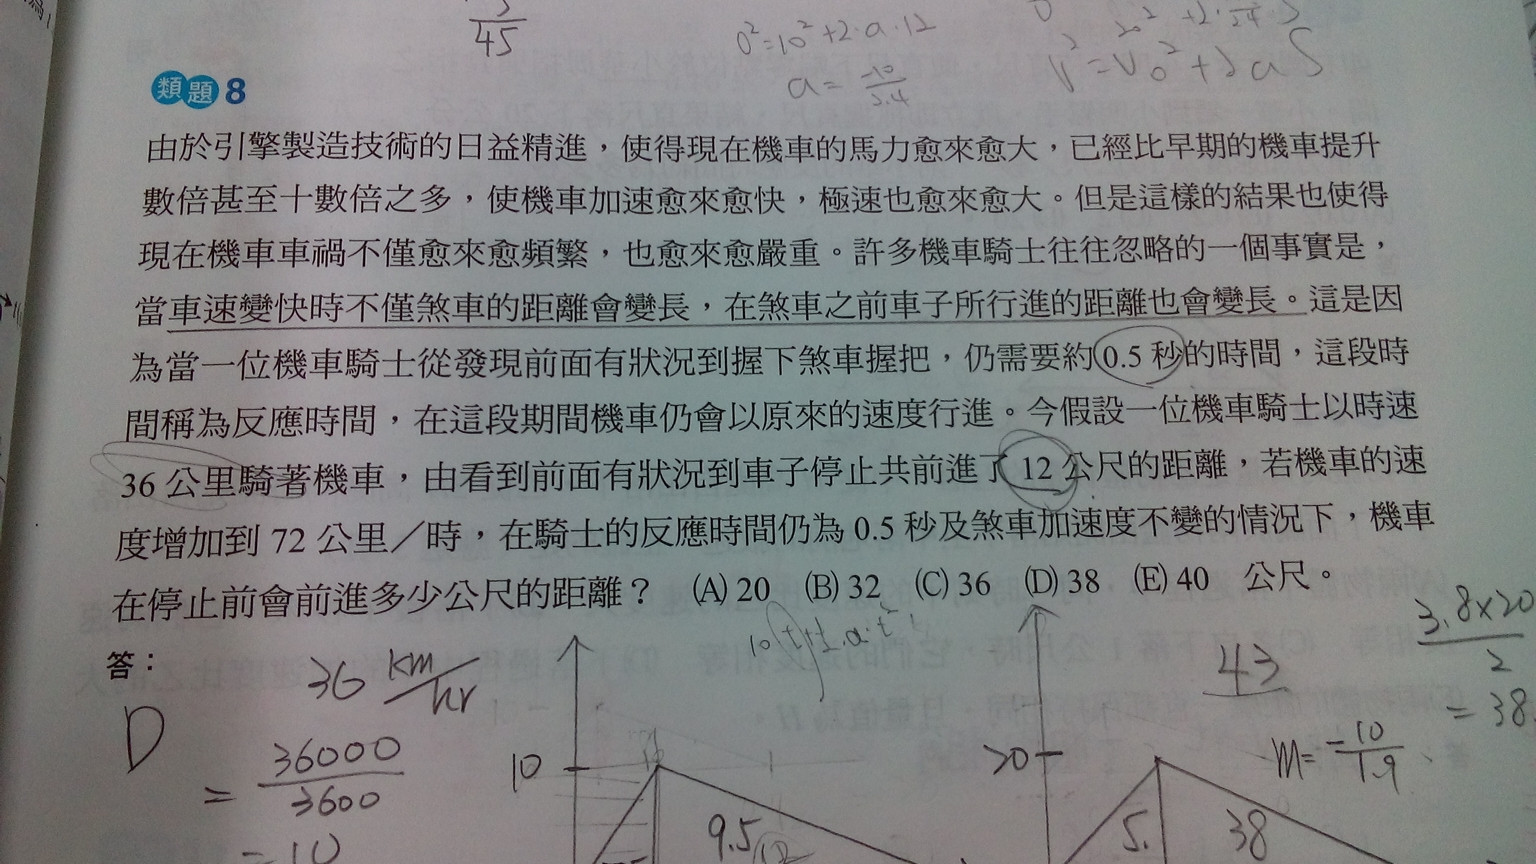 45
0²=10²+2·a·12
V²=V₀²+2aS
a=
類題8
由於引擎製造技術的日益精進，使得現在機車的馬力愈來愈大，已經比早期的機車提升
數倍甚至十數倍之多，使機車加速愈來愈快，極速也愈來愈大。但是這樣的結果也使得
現在機車車禍不僅愈來愈頻繁，也愈來愈嚴重。許多機車騎士往往忽略的一個事實是，
當車速變快時不僅煞車的距離會變長，在煞車之前車子所行進的距離也會變長。這是因
為當一位機車騎士從發現前面有狀況到握下煞車握把，仍需要約0.5秒的時間，這段時
間稱為反應時間，在這段期間機車仍會以原來的速度行進。今假設一位機車騎士以時速
36公里騎著機車，由看到前面有狀況到車子停止共前進了12公尺的距離，若機車的速
度增加到72公里／時，在騎士的反應時間仍為0.5秒及煞車加速度不變的情況下，機車
在停止前會前進多少公尺的距離？ (A) 20 (B) 32 (C) 36 (D) 38 (E) 40 公尺。
答：
D
36 km/hr
= 36000/3600
= 10
10
9.5
43
20
m= -10/1.9
5.
38
3.8×20/2
= 38